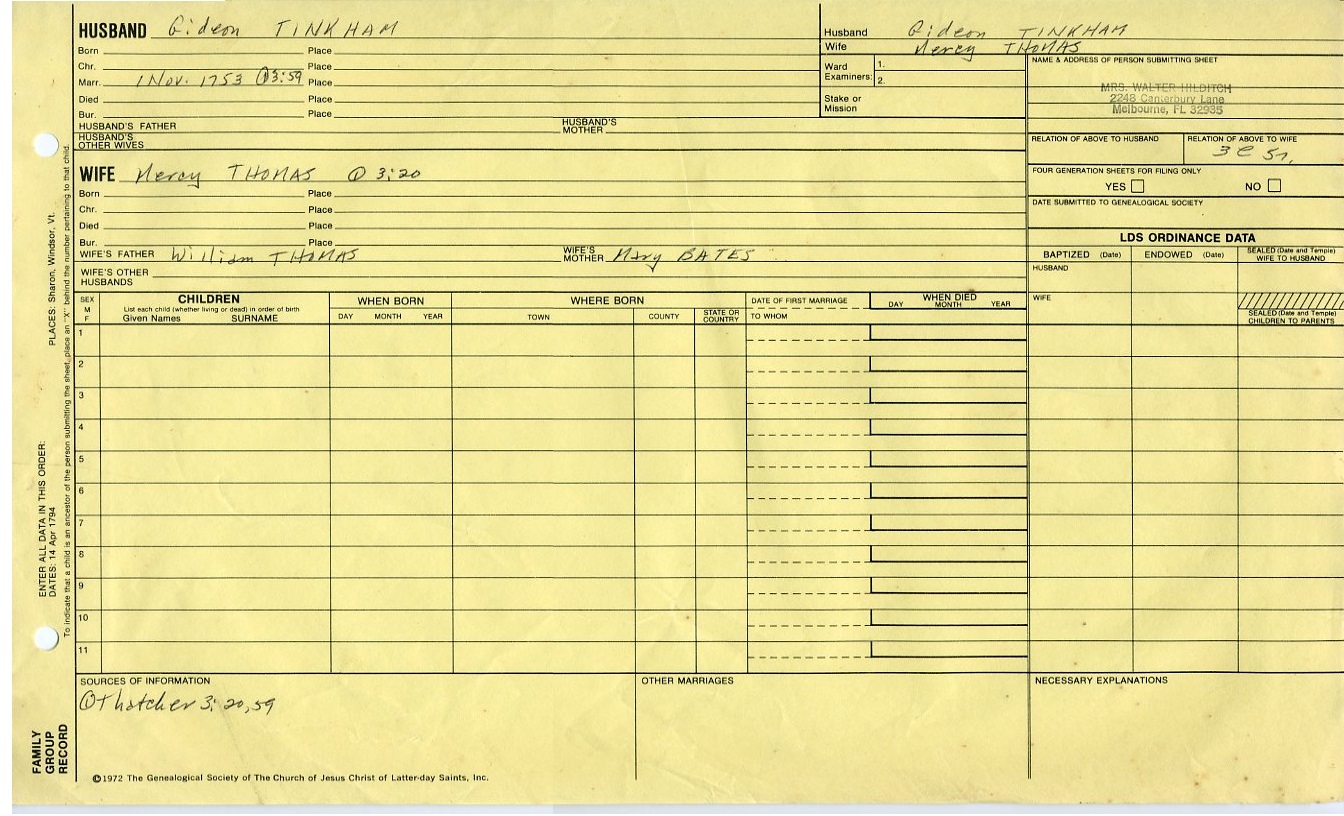 HUSBAND Gideon TINKHAM
Born Place
Chr. Place
Marr. 1 Nov. 1753 ①3:59 Place
Died Place
Bur. Place
HUSBAND'S FATHER HUSBAND'S MOTHER
HUSBAND'S OTHER WIVES
WIFE Mercy THOMAS ① 3:20
Born Place
Chr. Place
Died Place
Bur. Place
WIFE'S FATHER William THOMAS WIFE'S MOTHER Mary BATES
WIFE'S OTHER HUSBANDS
Husband Gideon TINKHAM
Wife Mercy THOMAS
Ward Examiners: 1.
2.
Stake or Mission
NAME & ADDRESS OF PERSON SUBMITTING SHEET
MRS. WALTER HILDITCH
2248 Canterbury Lane
Melbourne, FL 32935
RELATION OF ABOVE TO HUSBAND RELATION OF ABOVE TO WIFE
3 C 5r.
FOUR GENERATION SHEETS FOR FILING ONLY
YES NO
DATE SUBMITTED TO GENEALOGICAL SOCIETY
LDS ORDINANCE DATA
BAPTIZED (Date) ENDOWED (Date) SEALED (Date and Temple) WIFE TO HUSBAND
HUSBAND
WIFE
SEALED (Date and Temple) CHILDREN TO PARENTS
SEX M F CHILDREN WHEN BORN WHERE BORN DATE OF FIRST MARRIAGE WHEN DIED
List each child (whether living or dead) in order of birth DAY MONTH YEAR
Given Names SURNAME DAY MONTH YEAR TOWN COUNTY STATE OR COUNTRY TO WHOM
1
2
3
4
5
6
7
8
9
10
11
SOURCES OF INFORMATION OTHER MARRIAGES NECESSARY EXPLANATIONS
①Thatcher 3:20,59
©1972 The Genealogical Society of The Church of Jesus Christ of Latter-day Saints, Inc.
FAMILY GROUP RECORD
ENTER ALL DATA IN THIS ORDER:
DATES: 14 Apr 1794 PLACES: Sharon, Windsor, Vt.
To indicate that a child is an ancestor of the person submitting the sheet, place an "X" behind the number pertaining to that child.